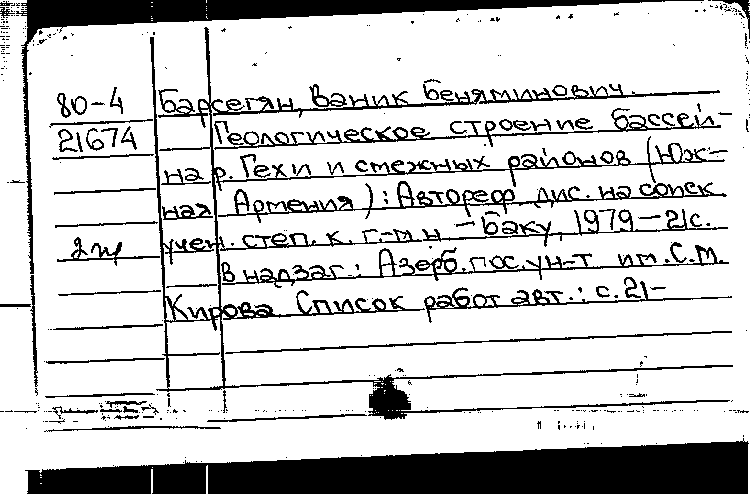 80-4 Барсегян, Ваник Беняминович.
21674 Геологическое строение бассей-
на р. Гехи и смежных районов (Юж-
ная Армения): Автореф. дис. на соиск
2 т учен. степ. к. г.-м.н - Баку, 1979 - 21с.
В надзаг: Азерб. гос. ун-т им. С.М.
Кирова Список работ авт.: с. 21-